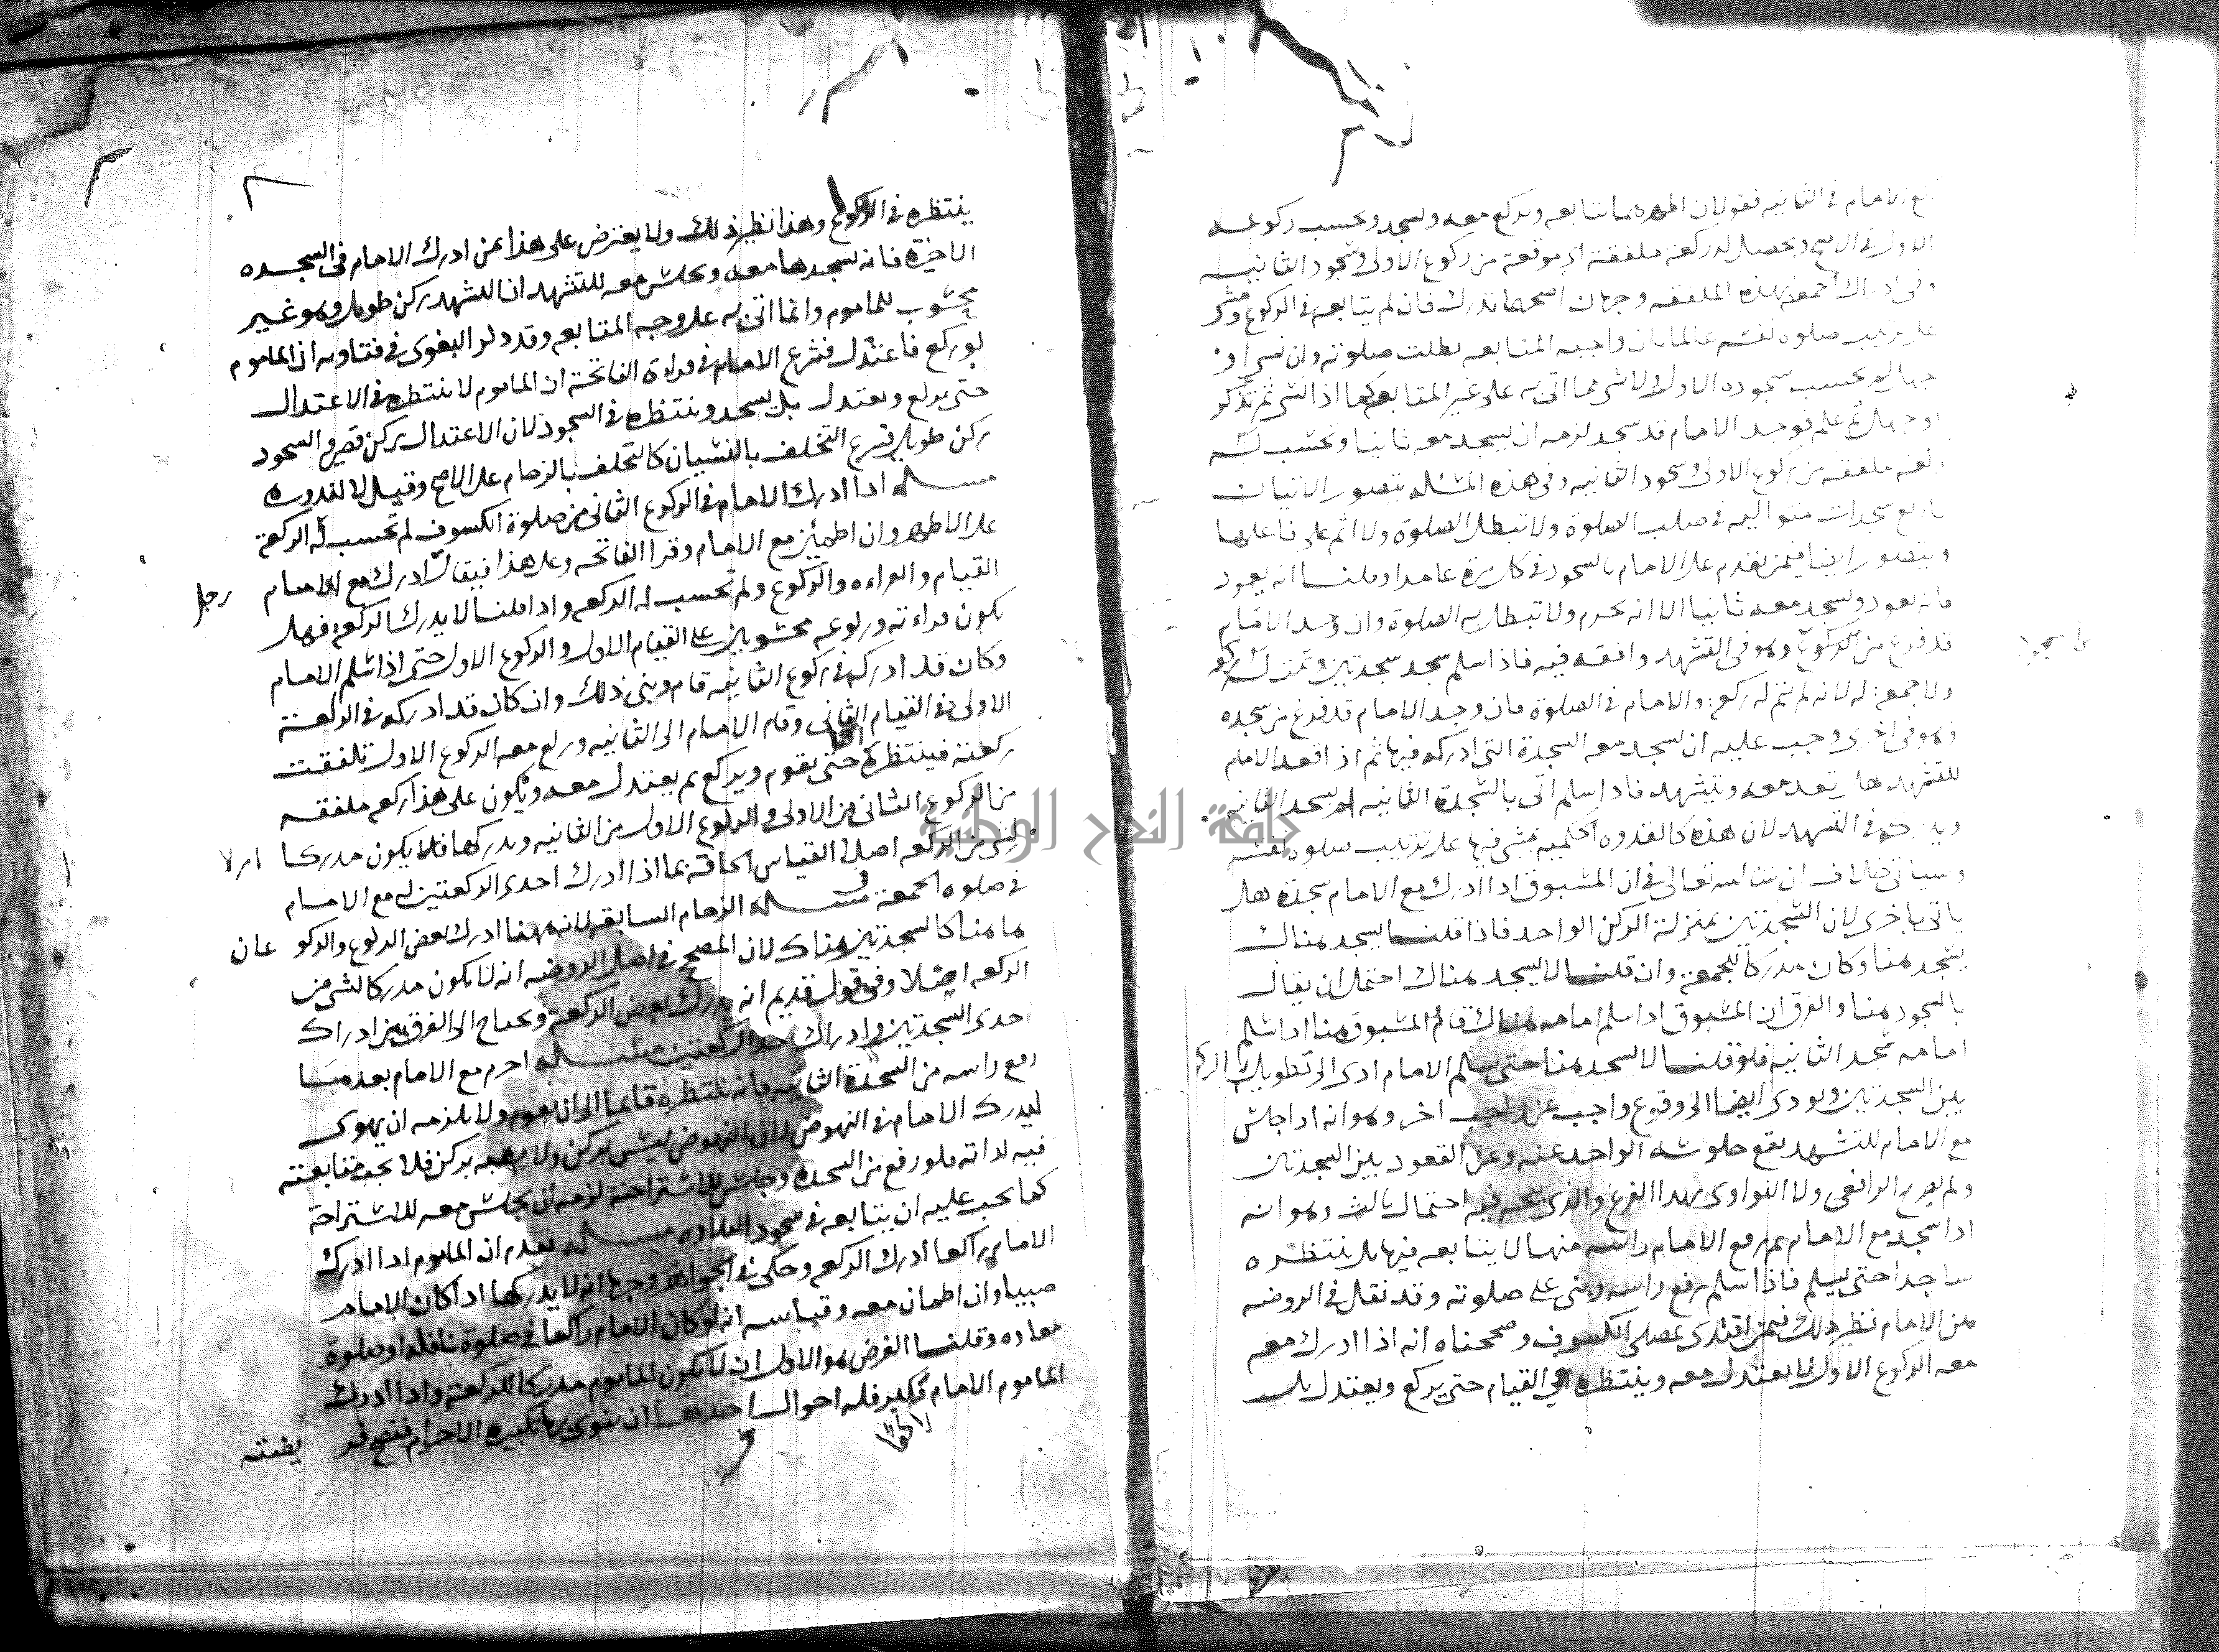 الامام في الثانيه فقولان احدهما يتابعه ويركع معه ويسجد ويحسب ركوعه
الاول في الاصح ويحصل له ركعة ملفقة اي موقعة من ركوع الاولى وسجود الثانيه
وفي ادراك الجمعه بهذه الملفقه وجهان اصحهما تدرك فان لم يتابعه في الركوع ومشى
على ترتيب صلوه نفسه عالما بان واجبه المتابعه بطلت صلوته وان نسي او
جهل لم يحسب سجوده الاول ولا شي مما اتى به على غير المتابعه كما اذا نسي ثم تذكر
او جهل ثم علم فوجد الامام قد سجد لزمه ان يسجد معه ثانيا وتحسب له
ركعه ملفقه من ركوع الاولى وسجود الثانيه وفي هذه المسئله يتصور الاتيان
باربع سجدات متواليه في صلب الصلوة ولا تبطل الصلوة ولا اثم على فاعلها
ويتصور ايضا فيمن تقدم على الامام بالسجود في كل مرة عامدا وقلنا انه يعود
فانه يعود ويسجد معه ثانيا الا انه يحرم ولا تبطل به الصلوة وان وجد الامام
قد فرغ من الركوع وهو في التشهد وافقه فيه فاذا سلم سجد سجدتين وتمت له ركعه
ولا جمعة له لانه لم تتم له ركعة والامام في الصلوة فان وجد الامام قد فرغ من سجده
وهو في اخرى وجب عليه ان يسجد معه السجدة التي ادركه فيها ثم اذا قعد الامام
للتشهد يقعد معه ويتشهد فاذا سلم اتى بالسجدة الثانيه ام يسجد الثانيه
ويدركه في التشهد لان هذه كالقدوه الحكميه يمشي فيها على ترتيب صلوه نفسه
وسياتي خلاف ان شا الله تعالى في ان المسبوق اذا ادرك مع الامام سجدة هل
ياتي باخرى لان السجدتين بمنزلة الركن الواحد فاذا قلنا يسجد هناك
يسجد هنا وكان مدركا للجمعة وان قلنا لا يسجد هناك احتمل ان يقال
بالسجود هنا والفرق ان المسبوق اذا سلم امامه هناك قام المسبوق هنا اذا سلم
امامه سجد الثانيه فلو قلنا لا يسجد هنا حتى يسلم الامام ادى الى تطويل الركن
بين السجدتين ويودى ايضا الى وقوع واجب عن واجب اخر وهو انه اذا جلس
مع الامام للتشهد يقع جلوسه الواحد عنه وعن القعود بين السجدتين
ولم يصرح الرافعي ولا النواوى بهذا الفرع والذى يتجه فيه احتمال ثالث وهو انه
اذا سجد مع الامام ثم رفع الامام راسه منها لا يتابعه فيها بل ينتظره
ساجدا حتى يسلم فاذا سلم رفع راسه وبنى على صلوته وقد نقل في الروضه
عن الامام نظير ذلك فيمن اقتدى بمصلى الكسوف وصححناه انه اذا ادرك معه
معه الركوع الاول لا يعتدل معه وينتظره في القيام حتى يركع ويعتدل بل
ينتظره في الركوع وهذا نظير ذلك ولا يعترض على هذا بمن ادرك الامام في السجده
الاخيرة فانه يسجدها معه ويجلس معه للتشهد ان التشهد ركن طويل وهو غير
محسوب للماموم وانما اتى به على وجه المتابعه وقد ذكر البغوى في فتاويه ان الماموم
لو ركع فاعتدل فشرع الامام في قراءة الفاتحة ان الماموم لا ينتظره في الاعتدال
حتى يركع ويعتدل بل يسجد وينتظره في السجود لان الاعتدال ركن قصير والسجود
ركن طويل فرع التخلف بالنسيان كالتخلف بالزحام على الاصح وقيل لا لندوره
مسله اذا ادرك الامام في الركوع الثاني من صلوة الكسوف لم تحسب له الركعة
على الاظهر وان اطمئن مع الامام وقرا الفاتحه وعلى هذا فيقال ادرك مع الامام رجل
القيام والقراءه والركوع ولم تحسب له الركعه واذا قلنا لا يدرك الركعة فهل
يكون قراءته وركوعه محسوبين على القيام الاول والركوع الاول حتى اذا سلم الامام
وكان قد ادركه في ركوع الثانيه قام وبنى ذلك وان كان قد ادركه في الركعة
الاولى في القيام الثاني وقام الامام الى الثانيه وركع معه الركوع الاول تلفقت
ركعته فينتظره حتى يقوم ويركع ثم يعتدل معه ويكون على هذا ركعه ملفقه
من الركوع الثاني من الاولى والركوع الاول من الثانيه ويدركها فلا يكون مدركا
لشى من الركعه اصلا القياس الحاقه بما اذا ادرك احدى الركعتين مع الامام
في صلوه الجمعة في مسله الزحام السابقه لانه ههنا ادرك بعض الركوع والركوعان
هاهنا كالسجدتين هناك لان المصحح في اصل الروضه انه لا يكون مدركا لشى من
الركعه اصلا وفي قول قديم انه يدرك بعض الركعة ويحتاج الى الفرق بين ادراك
احدى السجدتين وادراك احد الركعتين مسله احرم مع الامام بعد ما
رفع راسه من السجدة الثانيه فانه ينتظره قائما الى ان يقوم ولا يلزمه ان يهوى
ليدرك الامام في النهوض لان النهوض ليس بركن ولا يشبه بركن فلا يجب متابعته
فيه لذاته فلو رفع من السجده وجلس للاستراحة لزمه ان يجلس معه للاستراحة
كما يجب عليه ان يتابعه في سجود التلاوه مسله تقدم ان الماموم اذا ادرك
الامام راكعا ادرك الركعه وحكى في الجواهر وجها انه لا يدركها اذا كان الامام
صبيا وان اطمان معه وقياسه انه لو كان الامام راكعا في صلوة نافله او صلوة
معاده وقلنا الفرض هو الاول ان لا يكون الماموم مدركا للركعة واذا ادرك
الماموم الامام فكبر فله احوال احدها ان ينوى بها تكبيرة الاحرام فتصح فر يضته